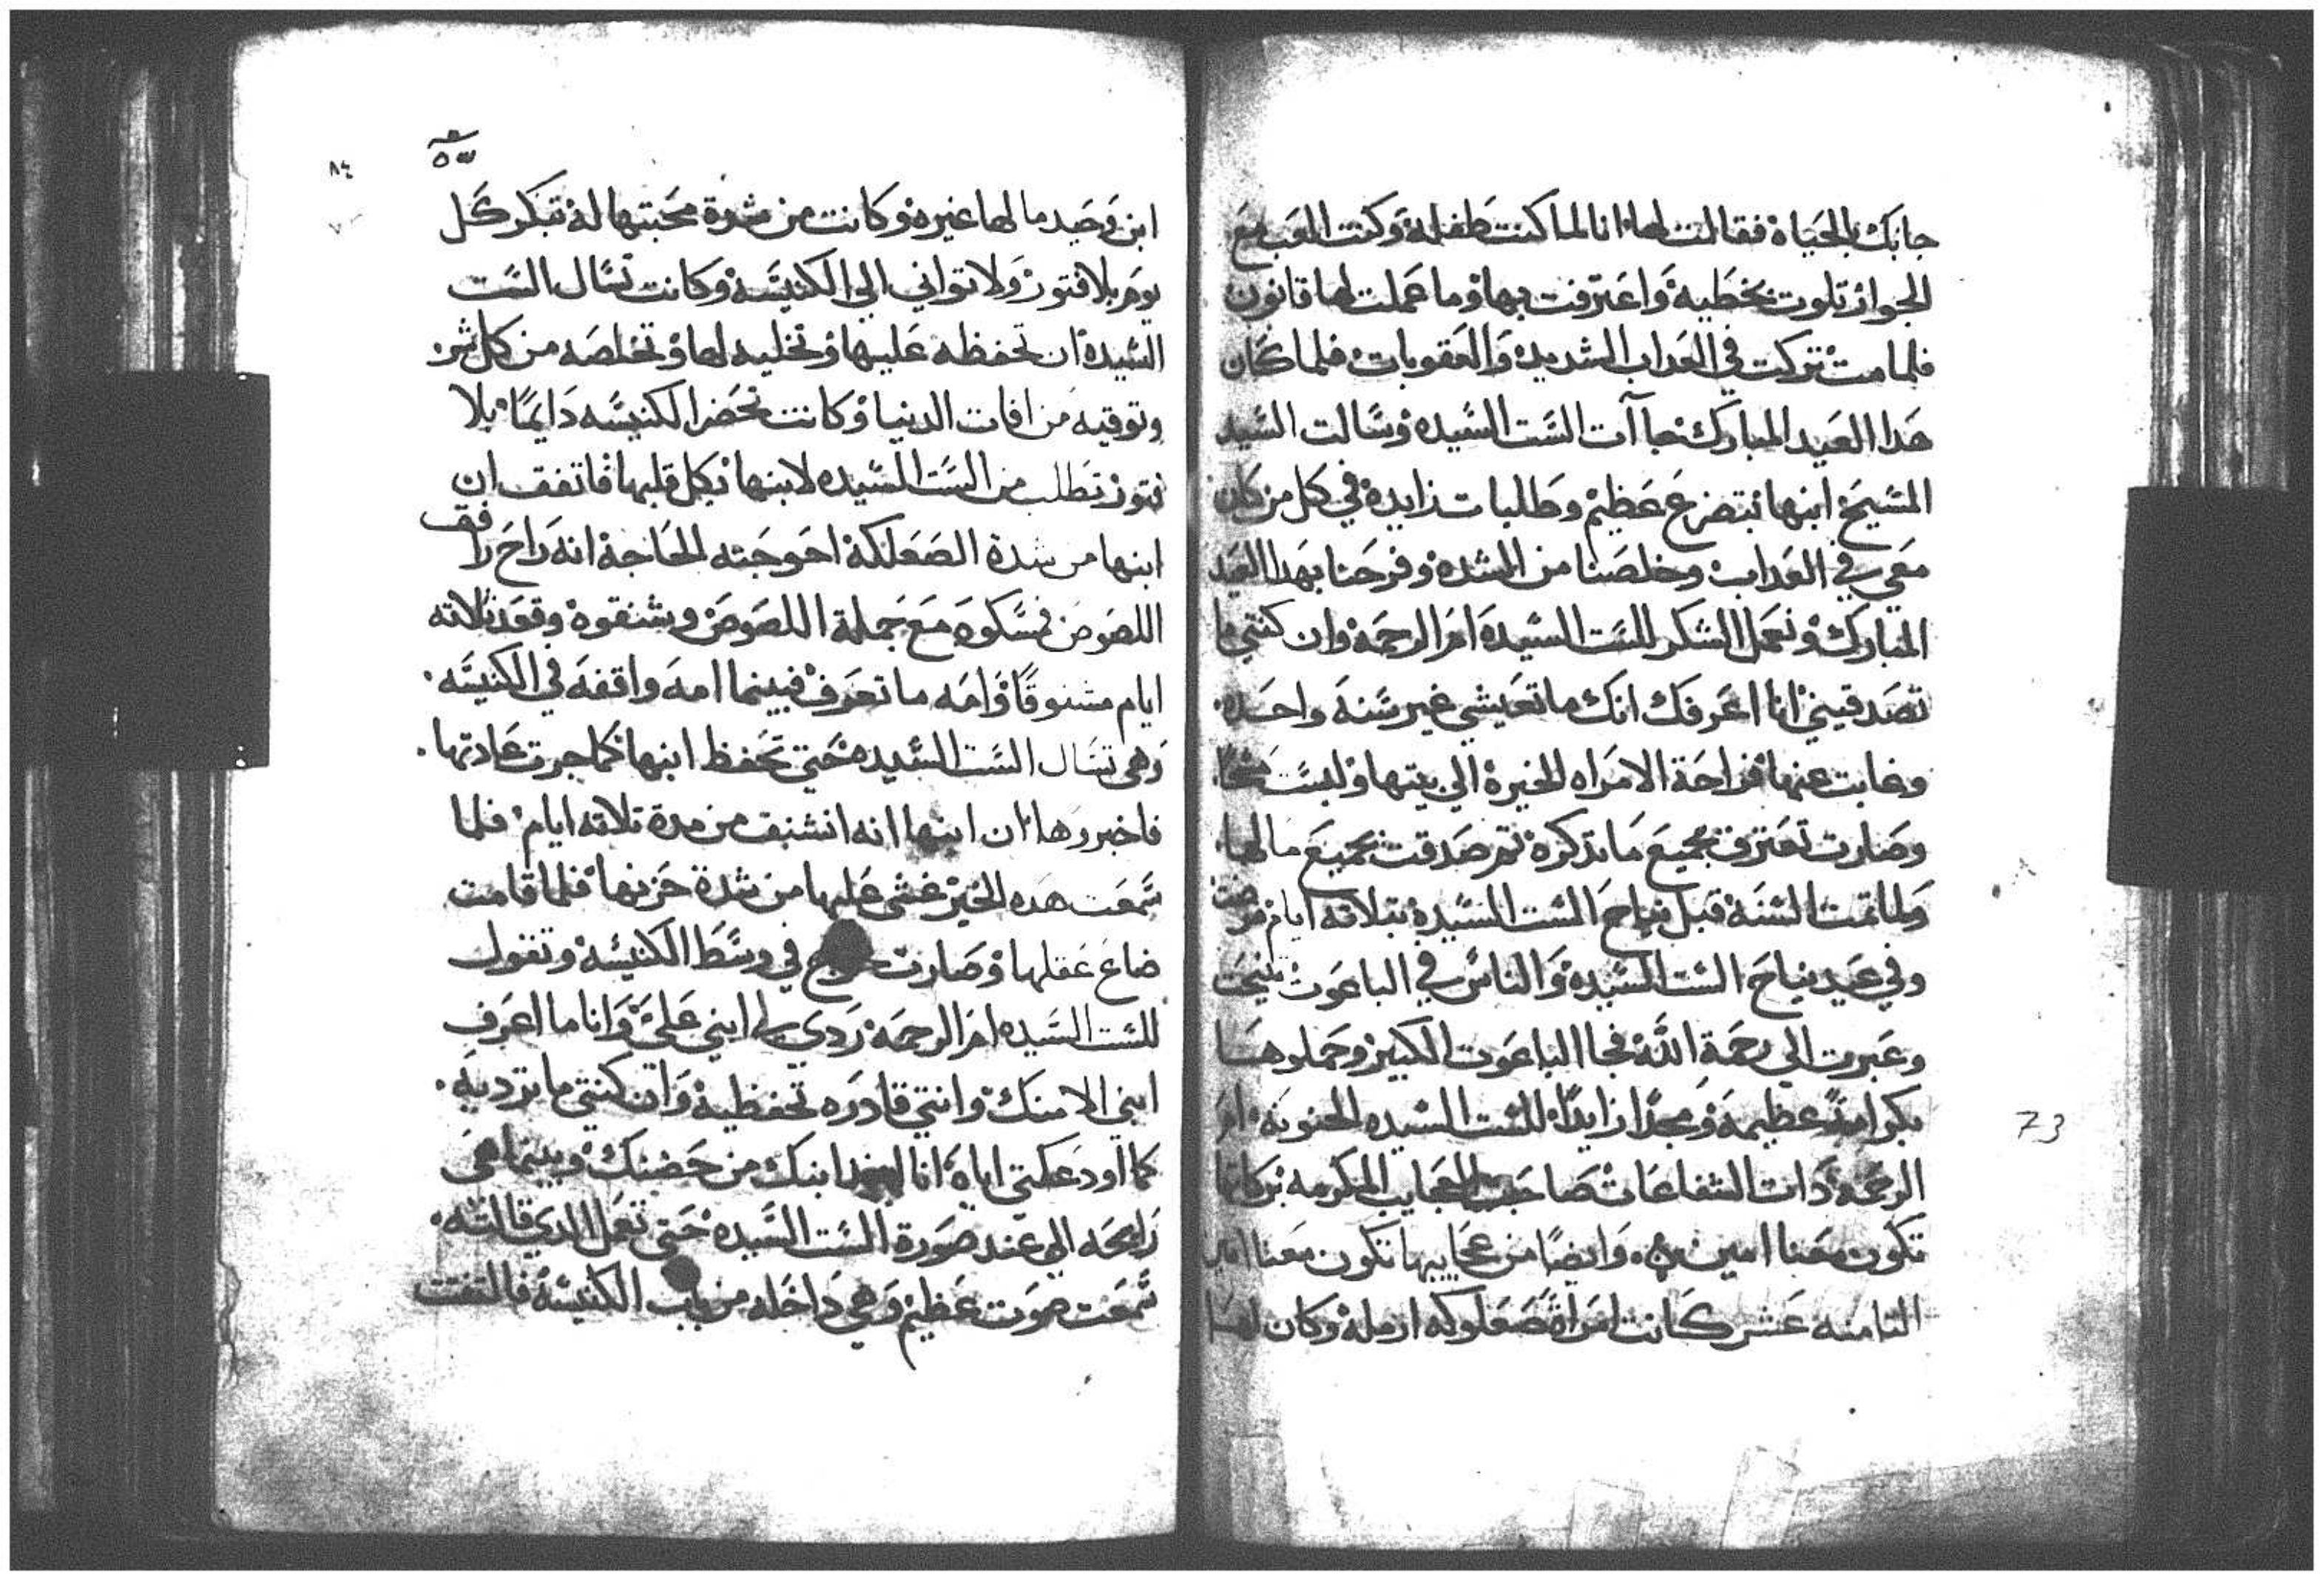 جابك بالحياة فقالت لها انا لما كنت طفلة وكنت العب مع
الجوار تلوت بخطيه واعترفت بها وما عملت لها قانون
فلما مت تركت في العداب الشديد والعقوبات فلما كان
هدا العيد المبارك جاآت الست السيده وسالت السيد
المسيح ابنها بتضرع عظيم وطلبات زايدة في كل من كان
معي في العداب وخلصنا من الشده وفرحنا بهدا العيد
المبارك ونعمل الشكر للست السيدة ام الرحمة وان كنتي ما
تصدقيني انا اعرفك انك ما تعيشي غير سنة واحده
وغابت عنها فراحة الامراه الخيرة الي بيتها ولبست
وصارت تعترف بجميع ما تدكره تم صدقت بجميع ما لها
ولما تمت السنة قبل نياح الست السيدة بتلاته ايام مرضت
وفي عيد نياح الست السيدة والناس في الباعوت تنيحت
وعبرت الي رحمة الله فجا الباعوت الكبير وحملوها
بكرامة عظيمة ومجدا زايدا للست السيده الحنونة ام
الرحمة دات الشفاعات صاحبت العجايب المكرمه بركاتها
تكون معنا امين وايضا من عجايبها تكون معنا امين
التامنه عشر كانت امراة صعلوكه ارمله وكان لها
٨٤
ابن وحيد ما لها غيره وكانت من شدة محبتها له تبكر كل
يوم بلا فتور ولا تواني الي الكنيسة وكانت تسال الست
السيدة ان تحفظه عليها وتخليه لها وتخلصه من كل شر
وتوقيه من افات الدنيا وكانت تحضر الكنيسه دايما بلا
فتور تطلب من الست السيده لابنها بكل قلبها فاتفق ان
ابنها من شدة الصعلكة احوجته الحاجة انه راح رافق
اللصوص فمسكوه مع جملة اللصوص وشنقوه وقعد تلاته
ايام مشنوقا وامه ما تعرف فبينما امه واقفه في الكنيسه
وهي تسال الست السيده حتي تحفظ ابنها كما جرت عادتها
فاخبروها ان ابنها انه انشنق من مدة تلاته ايام فلما
سمعت هده الخبر غشي عليها من شدة حزنها فلما قامت
ضاع عقلها وصارت في وسط الكنيسه وتقول
للست السيده ام الرحمة ردي لي ابني علي وانا ما اعرف
ابني الا منك وانتي قادره تحفظيه وان كنتي ما ترديه
كما اودعكتي اياه انا ابنك من حضنك وبينما هي
رايحه الي عند صورة الست السيده حتي تعمل الدي قالته
سمعت صوت عظيم وهي داخله من باب الكنيسة فالتفتت
73